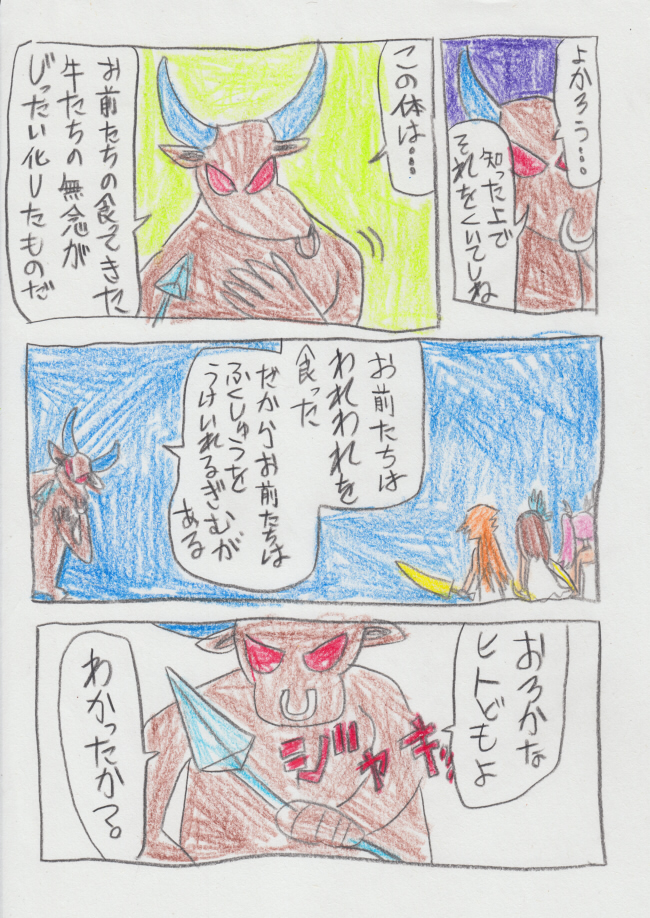 よかろう…
知った上で
それをくいてしね
この体は…
お前たちの食ってきた
牛たちの無念が
じったい化したものだ
お前たちは
われわれを
食った
だからお前たちは
ふくしゅうを
うけいれるぎむが
ある
おろかな
ヒトどもよ
ジャキッ
わかったかる。